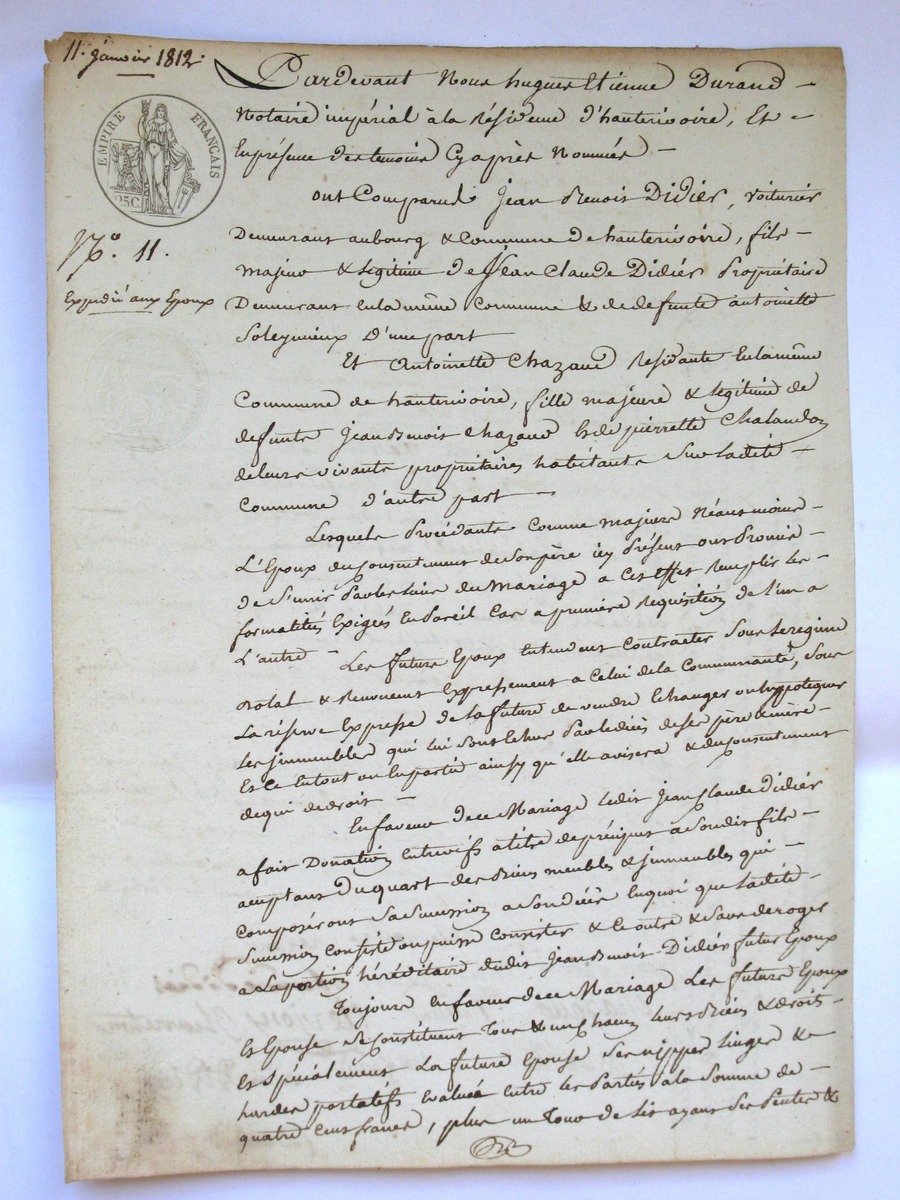 11. janvier 1812.
EMPIRE FRANÇAIS
25 C.
N.º 11.
Expédié aux Epoux
Pardevant Nous hugues Etienne Durand
Notaire impérial à la Résidence d'hauterivoire, Et
En présence des temoins Cy après Nommés
ont Comparus Jean Benoit Didier, voiturier
Demeurant au bourg & Commune De hauterivoire, fils
majeur & legitime de Jean Claude Didier Propriétaire
Demeurant en la même Commune & de defunte antoinette
Soleymieux D'une part
Et Antoinette Chazaud Residante En la même
Commune de hauterivoire, fille majeure & legitime de
defunts Jean Benoit Chazaud et de pierrette Chalandon
de leurs vivants propriétaires habitants Sur la dite
Commune D'autre part
Lesquels Procédants Comme majeurs Néansmoins
L'Epoux du Consentement de Son père icy Présent ont Promis
de S'unir Par les liens du Mariage a Cet effet Remplir les
formalités Exigées En Pareil Cas a première Requisition de l'un a
L'autre Les futurs Epoux Entendent Contracter Sous le regime
Dotal & Renoncent Expressement a Celui de la Communauté, Sous
La réserve Expresse de la future de vendre Echanger ou hypotequer
Les jmmeubles qui lui Sont Echus Par le décès de Ses père & mère
Et Ce En tout ou En partie ainsy qu'elle avisera & du Consentement
de qui de droit
En faveur de ce Mariage Ledit Jean Claude Didier
a fait Donation Entrevifs a titre de préciput a Son dit fils
acceptant Du quart des Biens meubles & jmmeubles qui
Composeront Sa Succession a Son décès En quoi que la dite
Succession Consiste ou puisse Consister & Ce outre & Sans deroger
a La portion héréditaire dudit Jean Benoit Didier futur Epoux
Toujours En faveur de ce Mariage Les futurs Epoux
Et Epouse Se Constituent Tous & un chacun leurs Biens & droits
Et Spécialement La future Epouse Ses nippes linges &
hardes portatifs Evalués Entre les Parties a la Somme de
quatre Cent francs, plus un Tour de Lit ayant Ses Pentes &